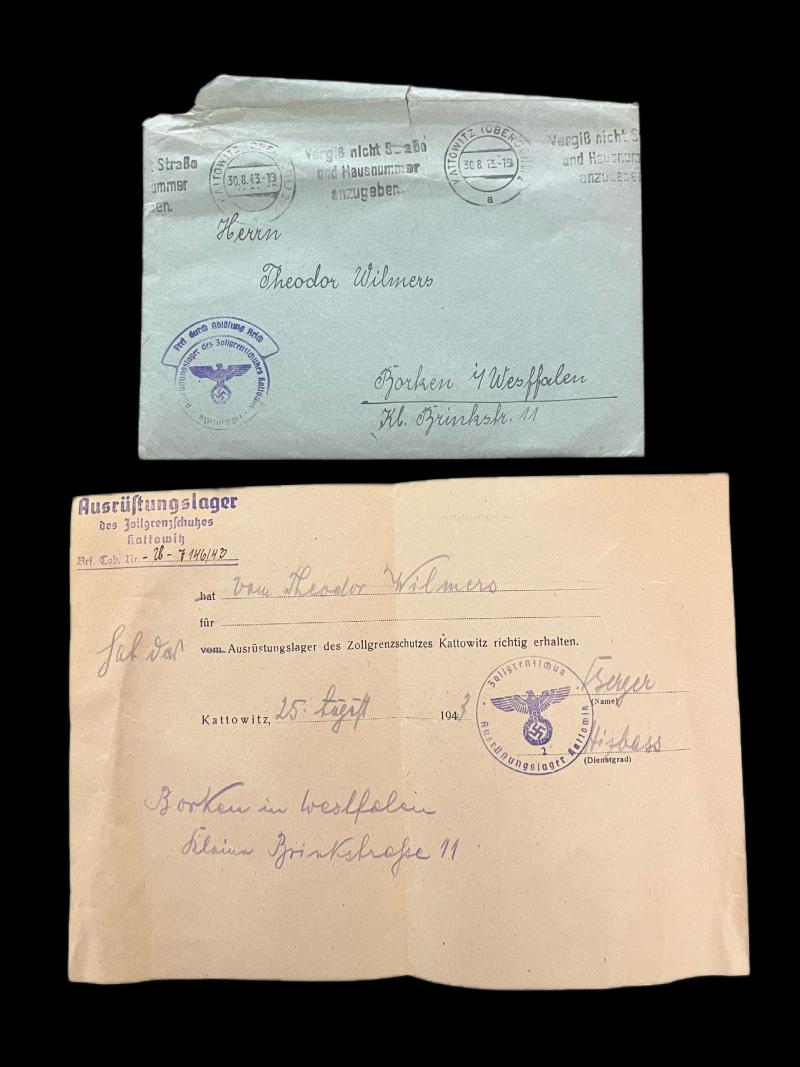 t Straße
ummer
en.
KATTOWITZ (OBERSCHL)
30.8.43.-19
Vergiß nicht Straße
und Hausnummer
anzugeben.
KATTOWITZ (OBERSCHL)
30.8.43.-19
a
Vergiß nicht S
und Hausnum
anzugebe
Herrn
Theodor Wilmers
Frei durch Ablösung Reich
Ausrüstungslager des Zollgrenzschutzes Kattowitz
Borken i/Westfalen
Kl. Brinkstr. 11
Ausrüstungslager
des Zollgrenzschutzes
Kattowitz
Brf. Tab. Nr. 7146/43
hat vom Theodor Wilmers
für
hat das vom Ausrüstungslager des Zollgrenzschutzes Kattowitz richtig erhalten.
Kattowitz, 25. August 1943
Zollgrenzschutz
Ausrüstungslager Kattowitz
2
Berger
(Name)
(Dienstgrad)
Borken in Westfalen
Kleine Brinkstraße 11